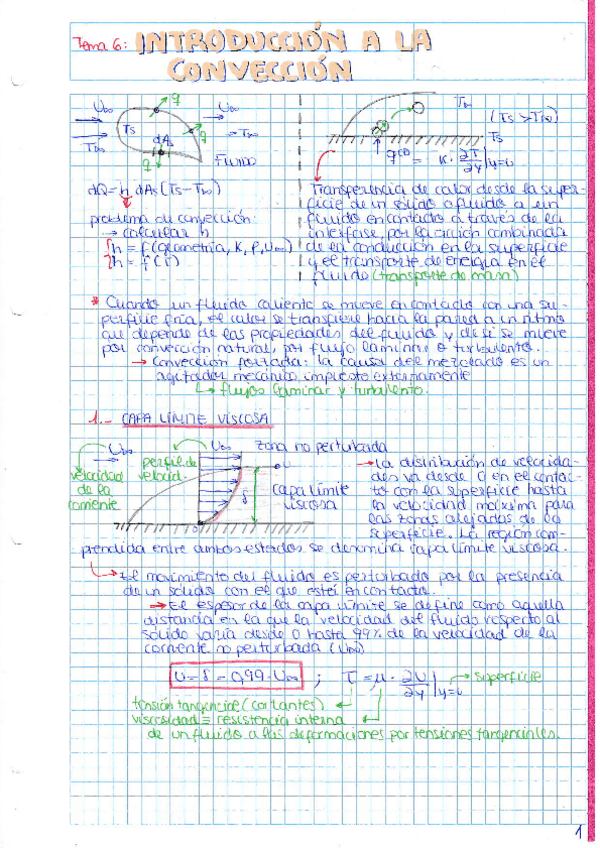 Tema 6: INTRODUCCIÓN A LA
CONVECCIÓN
U∞
q
U∞
Ts
T∞
dAs
q
T∞
q
FLUIDO
T∞
(Ts > T∞)
Ts
q^CD = K · ∂T/∂y|y=0
dQ = h dAs (Ts - T∞)
problema de convección:
→ calcular h
h = f(geometría, K, ρ, U∞)
Transferencia de calor desde la super-
ficie de un sólido o fluido a un
fluido en contacto a través de la
interfase, por la acción combinada
de la conducción en la superficie
y el transporte de energía en el
fluido (transporte de masa)
* Cuando un fluido caliente se mueve en contacto con una su-
perficie fría, el calor se transfiere hacia la pared a un ritmo
que depende de las propiedades del fluido y de si se mueve
por convección natural, por flujo laminar o turbulento.
→ Convección forzada: la causa del mezclado es un
agitador mecánico impuesto externamente
↳ flujos laminar y turbulento.
1.- CAPA LÍMITE VISCOSA
U∞
perfil de
velocid.
U∞
zona no perturbada
velocidad
de la
corriente
U
δ
capa límite
viscosa
→ La distribución de velocida-
des va desde 0 en el contac-
to con la superficie hasta
la velocidad máxima para
las zonas alejadas de la
superficie. La región com-
prendida entre ambos estados se denomina capa límite viscosa.
↳ El movimiento del fluido es perturbado por la presencia
de un sólido con el que esté en contacto.
→ El espesor de la capa límite se define como aquella
distancia en la que la velocidad del fluido respecto al
sólido varía desde 0 hasta 99% de la velocidad de la
corriente no perturbada (U∞)
U - δ - 0,99 · U∞ ; τ = μ · ∂U/∂y|y=0 → superficie
tensión tangencial (cortantes)
viscosidad ≡ resistencia interna
de un fluido a las deformaciones por tensiones tangenciales.
1